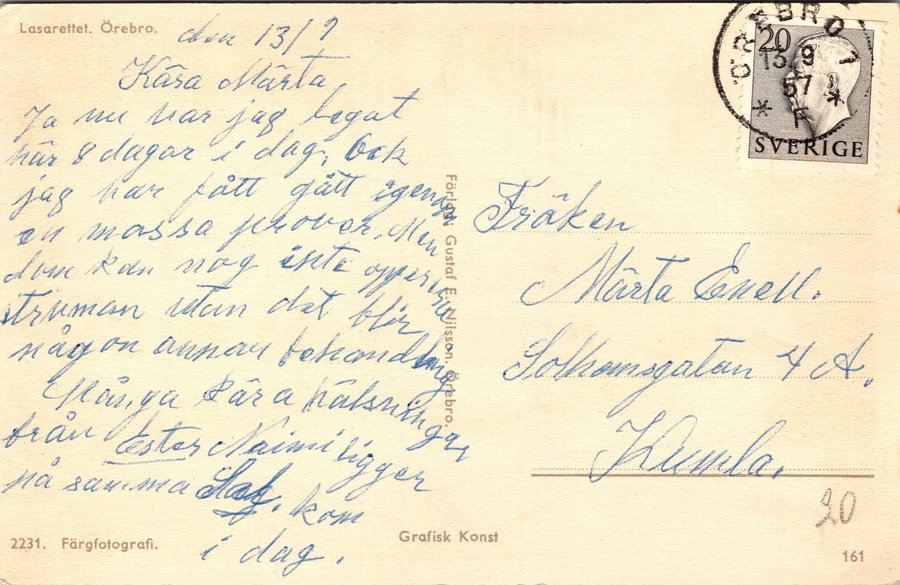 Lasarettet. Örebro.
den 13/9
Kära Märta
Ja nu har jag legat
här 8 dagar i dag, Ock
jag har fått gått igenom
en massa prover. Men
dom kan nog inte operera
struman utan det blir
någon annan behandling
Många kära hälsningar
från Ester Naimi ligger
på samma Sal. kom
i dag.
2231. Färgfotografi.
Grafisk Konst
161
Förlag: Gustaf E. Nilsson. Örebro.
ÖREBRO 1
13 9
57
* F *
20
SVERIGE
Fröken
Märta Enell.
4 A.
Kumla.
20